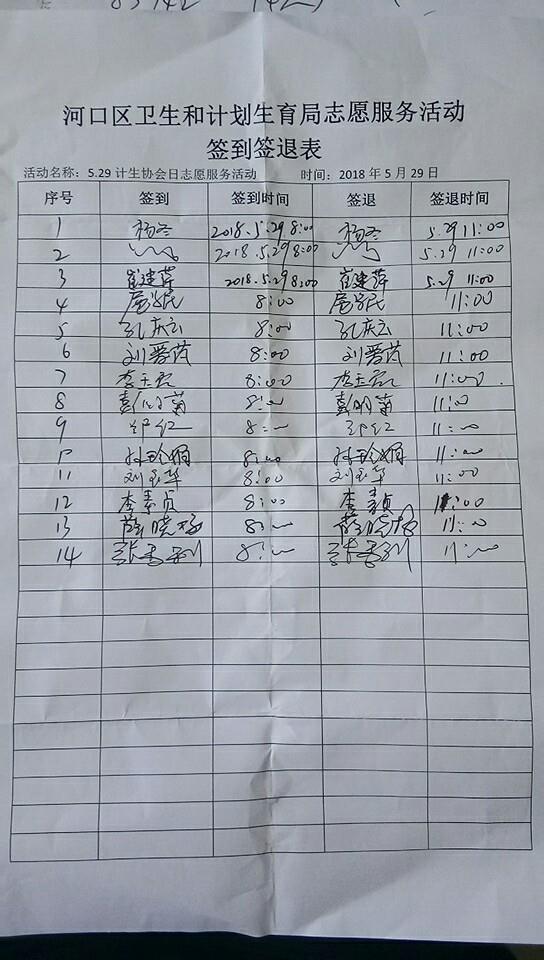 河口区卫生和计划生育局志愿服务活动
签到签退表
活动名称：5.29 计生协会日志愿服务活动 时间：2018 年 5 月 29 日
序号 签到 签到时间 签退 签退时间
1 杨冬 2018.5.29 8:00 杨冬 5.29 11:00
2 2018.5.29 8:00 5.29 11:00
3 崔建萍 2018.5.29 8:00 崔建萍 5.29 11:00
4 8:00 11:00
5 孔庆云 8:00 孔庆云 11:00
6 刘晋芮 8:00 刘晋芮 11:00
7 李玉 8:00 李玉 11:00
8 彭 菊 8:00 彭明菊 11:00
9 红 8:00 红 11:00
10 林玲娟 8:00 林玲娟 11:00
11 刘玉华 8:00 刘玉华 11:00
12 李素贞 8:00 李素贞 11:00
13 薛晓 8:00 薛晓 11:00
14 张 8:00 张 11:00